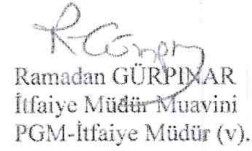 Ramadan GÜRPINAR
İtfaiye Müdür Muavini
PGM-İtfaiye Müdür (v).